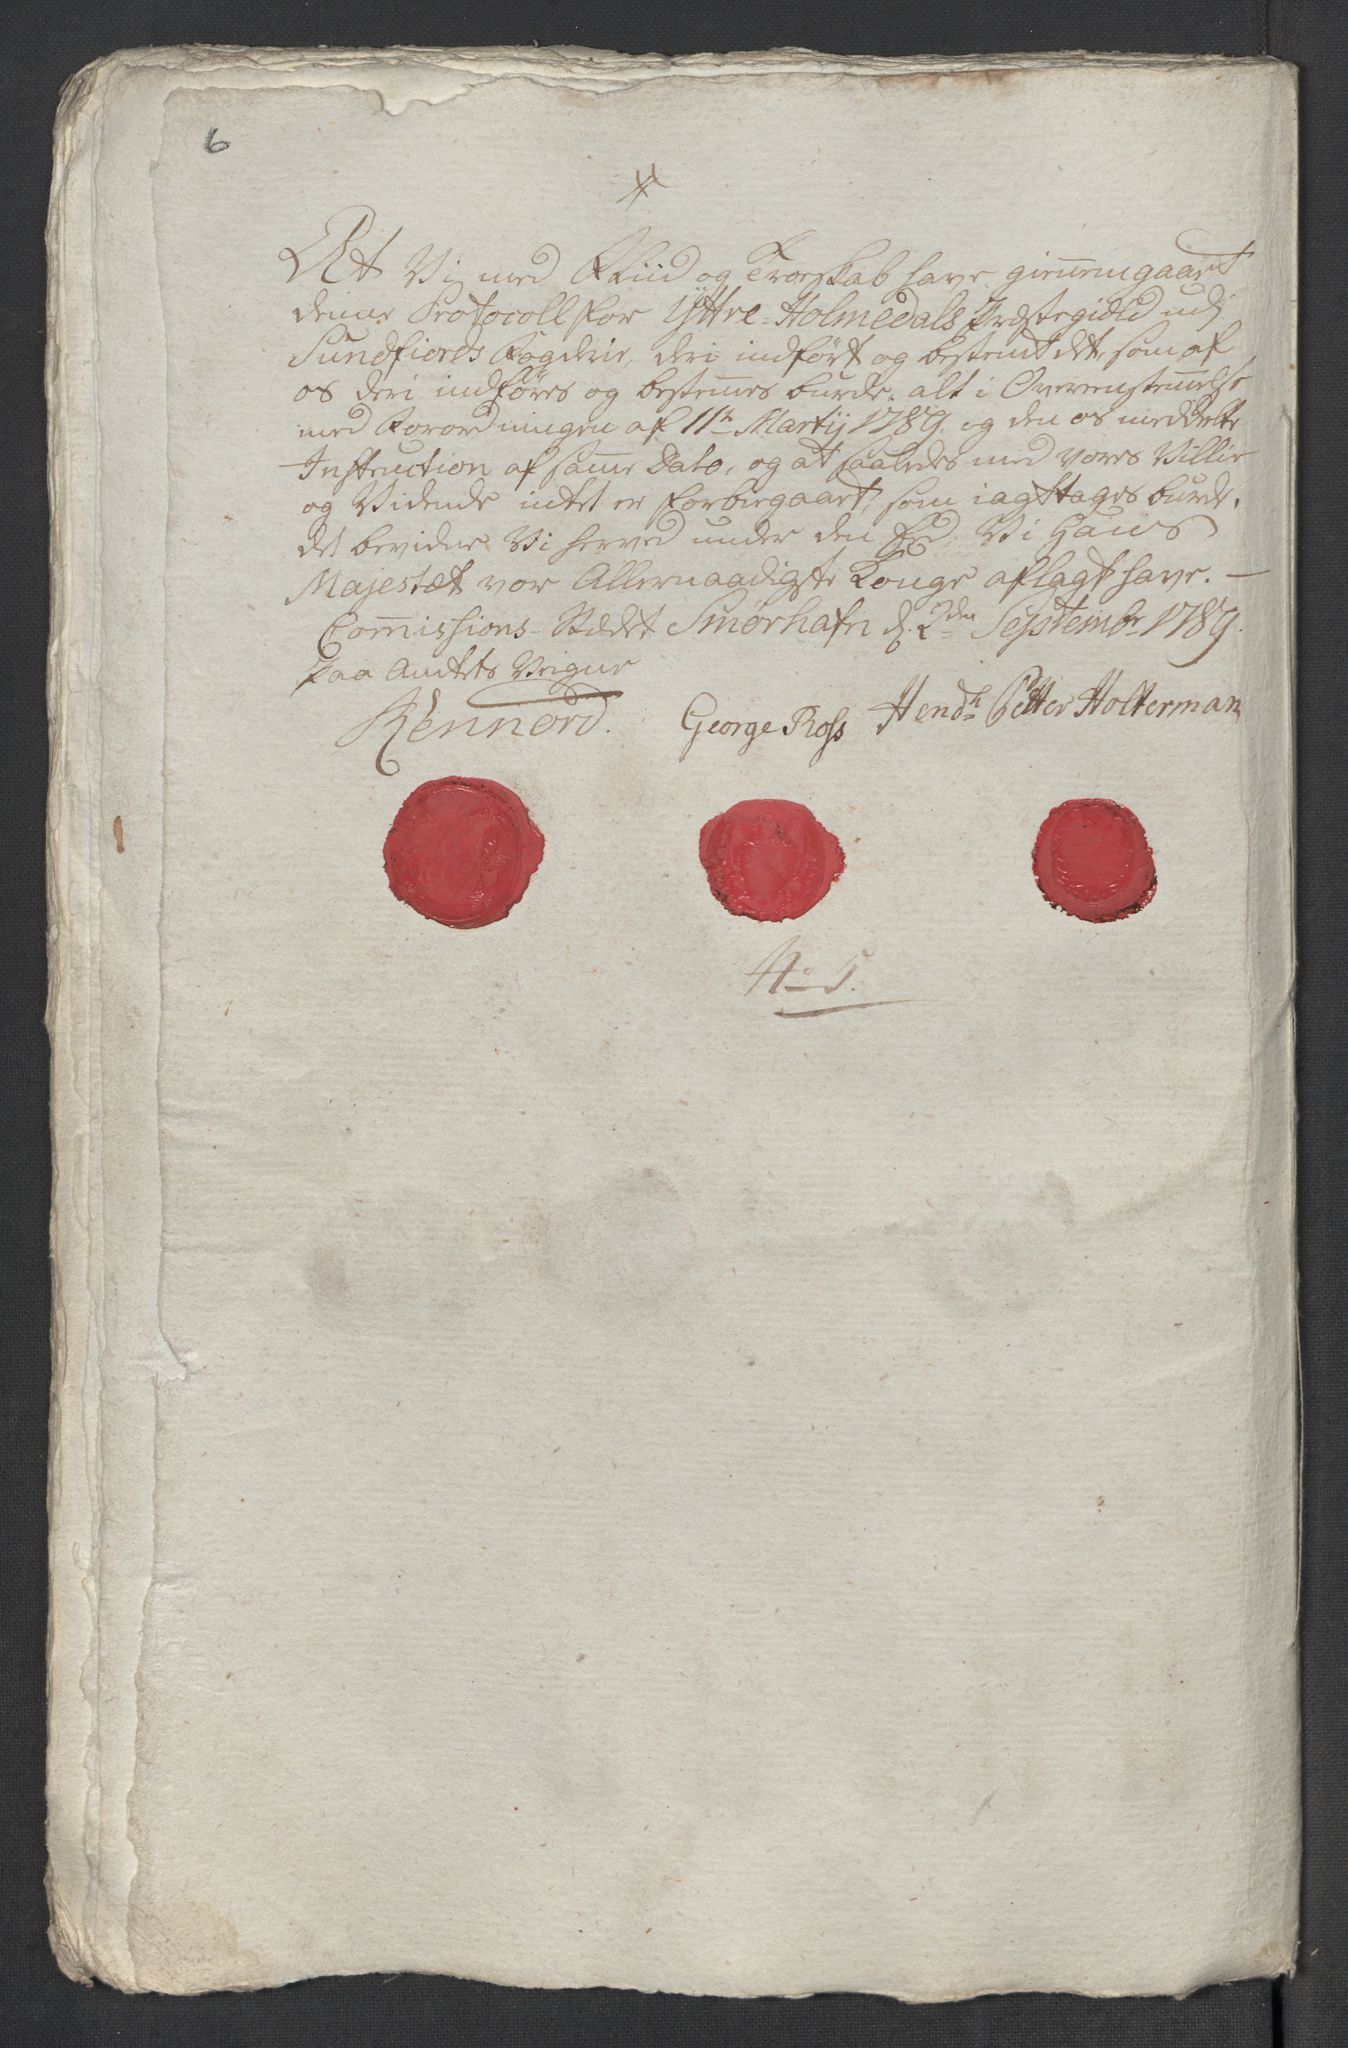 6
At Vi med Fliid og Troeskab have giennemgaaet
denne Protocoll for Ÿttre-Holmedals Præstegield udj
Sundfiords Fogderie, deri indført og bestemt det, som af
os deri indføres og bestemes burde, alt i Overenstemelse
med Forordningen af 11te Martij 1789. og den os meddeelte
Instruction af samme Dato, og at saaledes med vores Villie
og Vidende intet er forbiegaaet, som iagttages burde,
det bevidne Vi herved under den Eed, Vi Hans
Majestæt vor Allernaadigste Konge aflagt have. —
Commissions-Stædet Smørhafn d. 2den Septembr 1789.
Paa Amtets Vegne
Rennord. George Ross Hendh Petter Holterman
No 5.